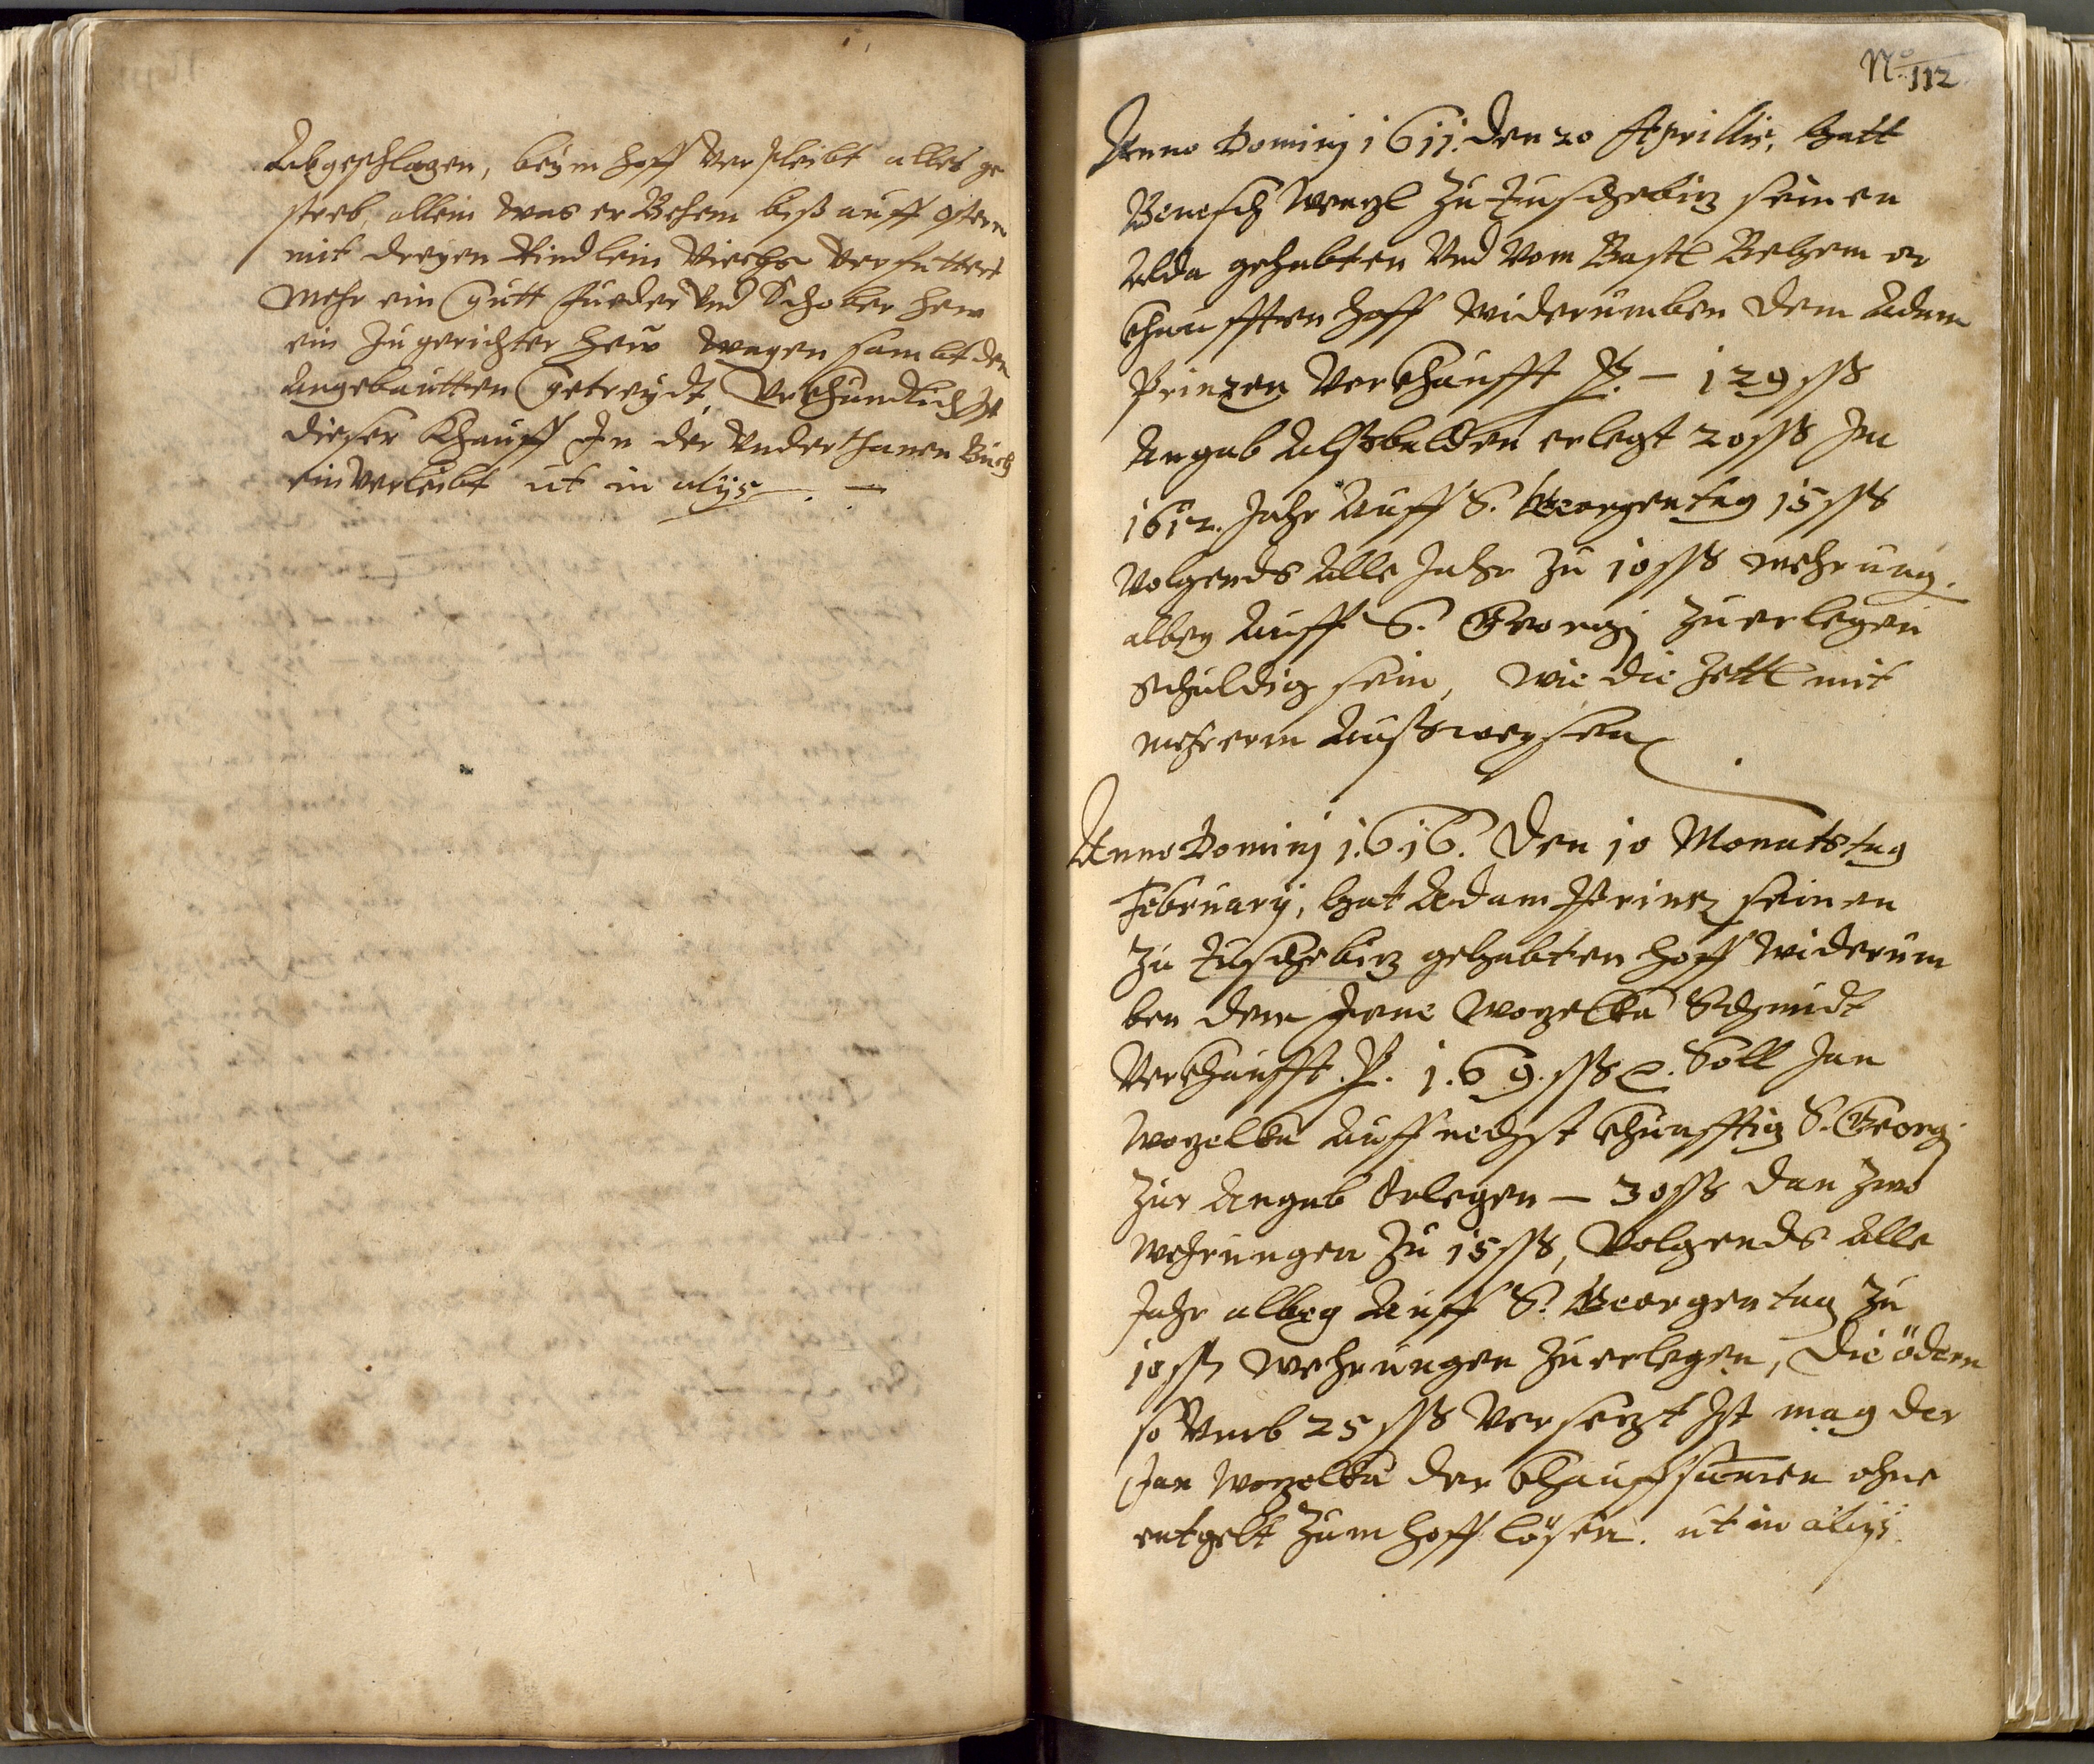 Abgeschlagen, beÿm hoff Verpleibt alles ge
streb, allein was er Behem biß auff ostern
mit dreÿen Rindlein Viechs Verfuttert
Mehr ein Gutt fueder Vnd Schober hew
ein Zugerichter hew wagen sambt den
Angebautten Getreÿdt, Vrkhundlich Ist
dieser Khauff In der Vnderthanen Buch
einVerleibt ut in alÿs. —
No. 112
Anno Dominj 1611. den 20 Aprillis, hatt
Benesch Wenzl Zu Tuschebitz seinen
Alda gehabten Vnd Vom Bastl Behem er
khaufften hoff widerumben dem Adam
Prinzen Verkhaufft P. — 129 ßß
Angab Alßbalden erlegt 20 ßß Im
1612. Jahr Auff S. Georgentag 15 ßß
Volgends Alle Jahr Zu 10 ßß wehrung.
albeg Auff S. Georgj Zuerlegen
Schuldig sein, wie die Zettl mit
mehrerm Außweysen.
Anno Dominj 1616. Den 10 Monatstag
Februarÿ, hat Adam Prinz seinen
Zu Tuschebitz gehabten hoff widerum
ben dem Jene Wozelka Schmidt
Verkhaufft. P. 1.69. ßß. Soll Jan
Wozelka Auff nechst khünfftig S. Georgj
Zur Angab Erlegen — 30 ßß dan Zwo
wehrungen Zu 15 ßß, Volgends Alle
Jahr albeg Auff S. Georgentag Zu
10 ßß wehrungen Zuerlegen, die ödern
so Vmb 25 ßß Versetzt Ist mag der
Jan Wozelka der khauffsumen ohne
entgelt Zum hoff lösen. ut in alÿs.